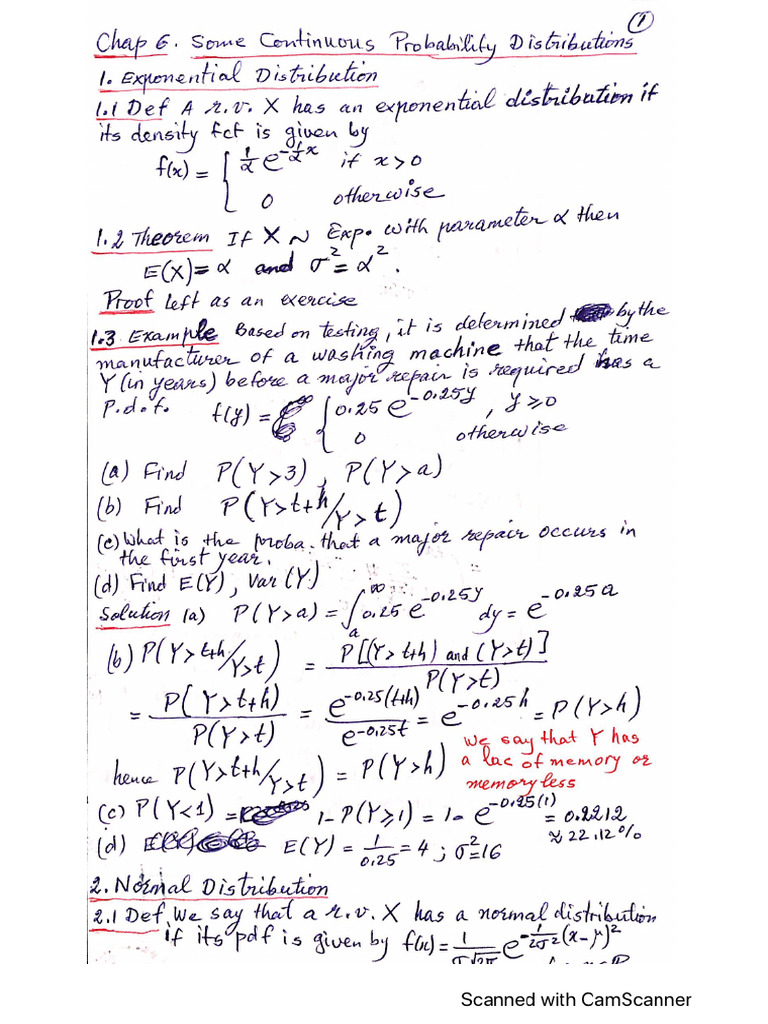 ①
Chap 6. Some Continuous Probability Distributions
1. Exponential Distribution
1.1 Def A r.v. X has an exponential distribution if
its density fct is given by
f(x) = { 1/α e^{-1/α x} if x > 0
0 otherwise
1.2 Theorem If X ~ Exp. with parameter α then
E(X) = α and σ² = α².
Proof left as an exercise
1.3 Example Based on testing, it is determined by the
manufacturer of a washing machine that the time
Y (in years) before a major repair is required has a
P.d.f. f(y) = { 0.25 e^{-0.25y}, y ≥ 0
0 otherwise
(a) Find P(Y > 3), P(Y > a)
(b) Find P(Y > t+h / Y > t)
(c) What is the proba. that a major repair occurs in
the first year.
(d) Find E(Y), Var(Y)
Solution (a) P(Y > a) = ∫_a^∞ 0.25 e^{-0.25y} dy = e^{-0.25a}
(b) P(Y > t+h / Y > t) = P[(Y > t+h) and (Y > t)] / P(Y > t)
= P(Y > t+h) / P(Y > t) = e^{-0.25(t+h)} / e^{-0.25t} = e^{-0.25h} = P(Y > h)
hence P(Y > t+h / Y > t) = P(Y > h)
we say that Y has
a lac of memory or
memoryless
(c) P(Y < 1) = 1 - P(Y ≥ 1) = 1 - e^{-0.25(1)} = 0.2212
≈ 22.12%
(d) E(Y) = 1/0.25 = 4 ; σ² = 16
2. Normal Distribution
2.1 Def. We say that a r.v. X has a normal distribution
if its pdf is given by f(x) = 1/(σ√2π) e^{-1/2σ² (x-μ)²}
Scanned with CamScanner